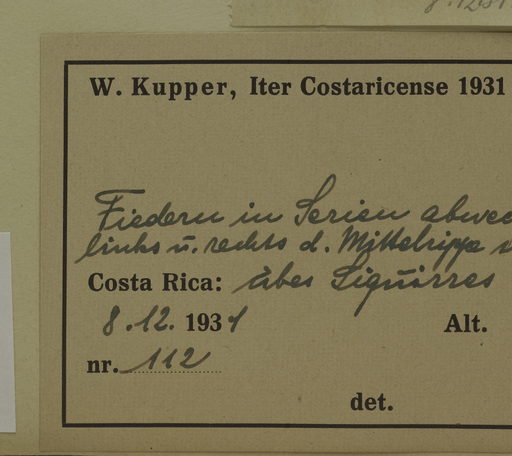 W. Kupper, Iter Costaricense 1931
Fiedern in Serien
links u. rechts d. Mittelrippe
Costa Rica: über Siquirres
8.12. 1931 Alt.
nr. 112
det.